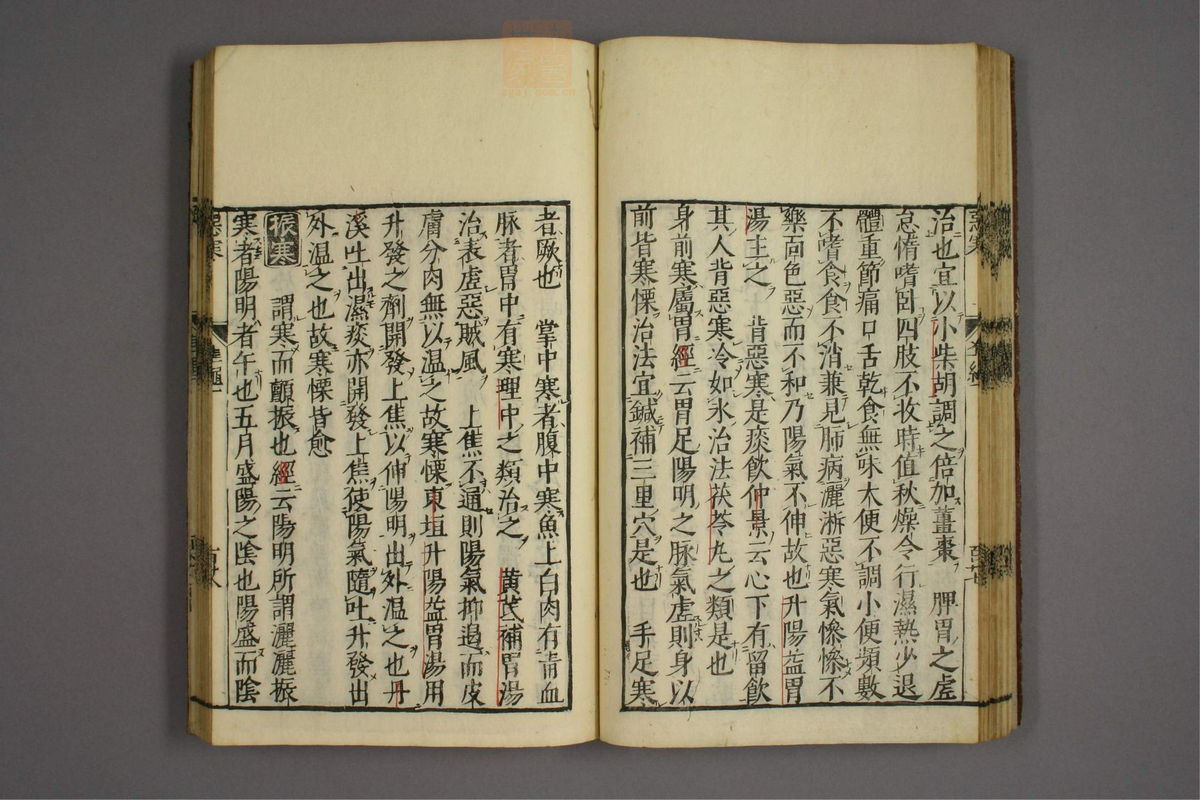 治也宜以小柴胡調之倍加薑棗　脾胃之虛
怠惰嗜卧四肢不收時值秋燥令行濕熱少退
體重節痛口舌乾食無味大便不調小便頻數
不嗜食食不消兼見肺病灑淅惡寒氣慘慘不
樂面色惡而不和乃陽氣不伸故也升陽益胃
湯主之　背惡寒是痰飲仲景云心下有留飲
其人背惡寒冷如氷治法茯苓丸之類是也
身前寒屬胃經云胃足陽明之脉氣虛則身以
前皆寒慄治法宜鍼補三里穴是也　手足寒
者厥也　掌中寒者腹中寒魚上白肉有青血
脉者胃中有寒理中之類治之　黄芪補胃湯
治表虛惡賊風　上焦不通則陽氣抑遏而皮
膚分肉無以温之故寒慄東垣升陽益胃湯用
升發之劑開發上焦以伸陽明出外温之也丹
溪吐出濕痰亦開發上焦使陽氣隨吐升發出
外温之也故寒慄皆愈
振寒　謂寒而顫振也經云陽明所謂灑灑振
寒者陽明者午也五月盛陽之陰也陽盛而陰